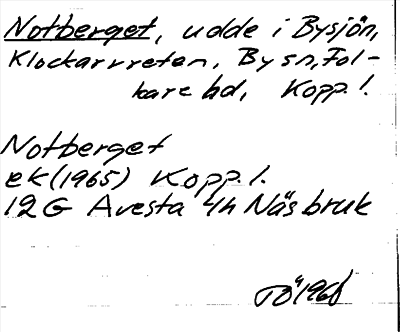 Notberget, udde i Bysjön,
Klockarvreten, By sn, Fol-
kare hd, Kopp. l.
Notberget
ek (1965) Kopp. l.
12G Avesta 4h Näs bruk